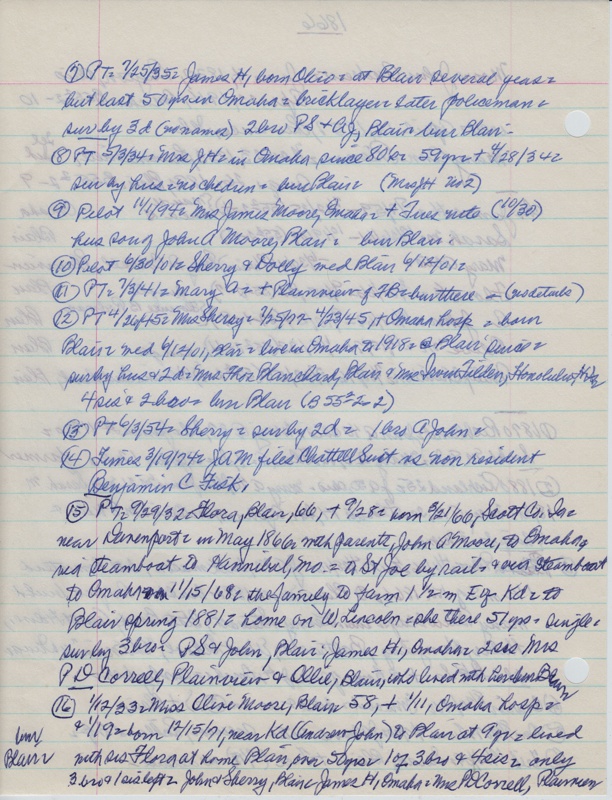 1866
(7) PT= 7/25/35= James H, born Ohio= at Blair several years=
but last 50 yrs in Omaha= bricklayer= later policeman=
sur by 3d (no names) 2 bro PS + AJ, Blair= bur Blair=
(8) PT 5/3/34= Mrs JH= in Omaha since 80s= 59 yrs= + 4/28/34=
sur by hus= no children= bur Blair= (Mrs JH No 2)
(9) Pilot 11/1/94= Mrs James Moore, Omaha= + Tues nite (10/30)
hus son of John A Moore, Blair= bur Blair=
(10) Pilot 6/20/01= Sherry & Dolly med Blair 6/12/01=
(11) PT= 7/3/41= Mary A= + Plainview of TB= bur there — (no details)
(12) PT 4/26/45= Mrs Sherry= 7/25/77- 4/23/45, + Omaha hosp = born
Blair= med 6/12/01, Blair= live in Omaha to 1918= @ Blair since=
sur by hus & 2d= Mrs Thos Blanchard, Blair & Mrs Irvin Tilden, Honolulu,
4 sis & 2 bro= bur Blair (B 55= 2o2)
(13) PT 6/3/54= Sherry= sur by 2d= 1 bro A John=
(14) Times 3/19/74= JAM files Chattell Suit vs non resident
Benjamin C Fisk,
(15) PT= 9/29/32= Flora, Blair, 66, + 9/28= born 5/21/66, Scott Co. Ia=
near Davenport= in May 1866= with parents, John A Moore, to Omaha,
via steamboat to Hannibal, Mo. = to St Joe by rail= & via steamboat
to Omaha 11/15/68= the family to farm 1 1/2 m E of Kd= to
Blair spring 1881= home on W Lincoln= she there 51 yrs= single=
sur by 3 bro= PS & John, Blair, James H, Omaha= 2 sis Mrs
P D Correll, Plainview & Ollie, Blair, who lived with her= bur Blair
(16) 1/12/33= Miss Olive Moore, Blair 58, + 1/11, Omaha hosp=
& 1/19= born 12/15/71, near Kd (Andrew John) to Blair at 9 yr= lived
with sis Flora at home Blair, over 50 yrs= 1 of 3 bro & 4 sis= only
3 bro & 1 sis left= John & Sherry, Blair= James H, Omaha= Mrs PD Correll, Plainview
bur Blair=